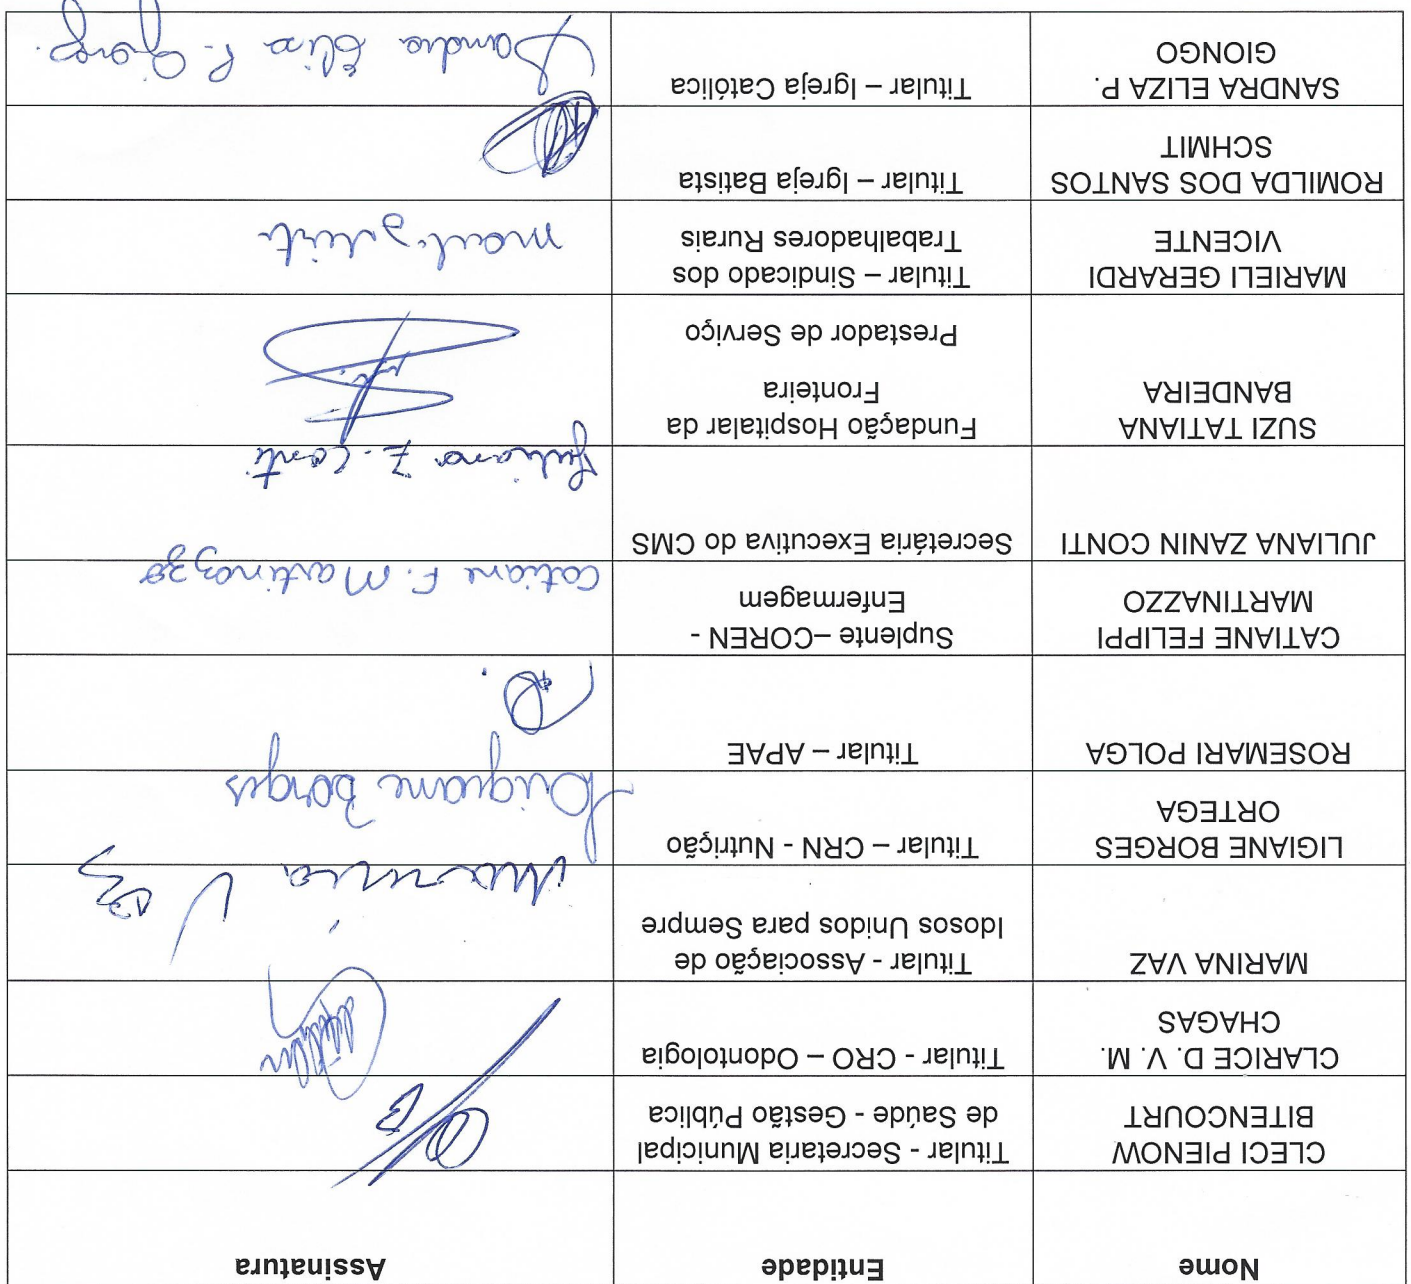 Nome Entidade Assinatura
CLECI PIENOW
BITENCOURT
Titular - Secretaria Municipal
de Saúde - Gestão Pública
CLARICE D. V. M.
CHAGAS
Titular - CRO – Odontologia
MARINA VAZ
Titular - Associação de
Idosos Unidos para Sempre
Marina Vaz
LIGIANE BORGES
ORTEGA
Titular – CRN - Nutrição
Ligiane Borges
ROSEMARI POLGA
Titular – APAE
CATIANE FELIPPI
MARTINAZZO
Suplente –COREN -
Enfermagem
Catiane F. Martinazzo
JULIANA ZANIN CONTI
Secretária Executiva do CMS
Juliana Z. Conti
SUZI TATIANA
BANDEIRA
Fundação Hospitalar da
Fronteira
Prestador de Serviço
MARIELI GERARDI
VICENTE
Titular – Sindicado dos
Trabalhadores Rurais
ROMILDA DOS SANTOS
SCHMIT
Titular – Igreja Batista
SANDRA ELIZA P.
GIONGO
Titular – Igreja Católica
Sandra Eliza P. Giongo